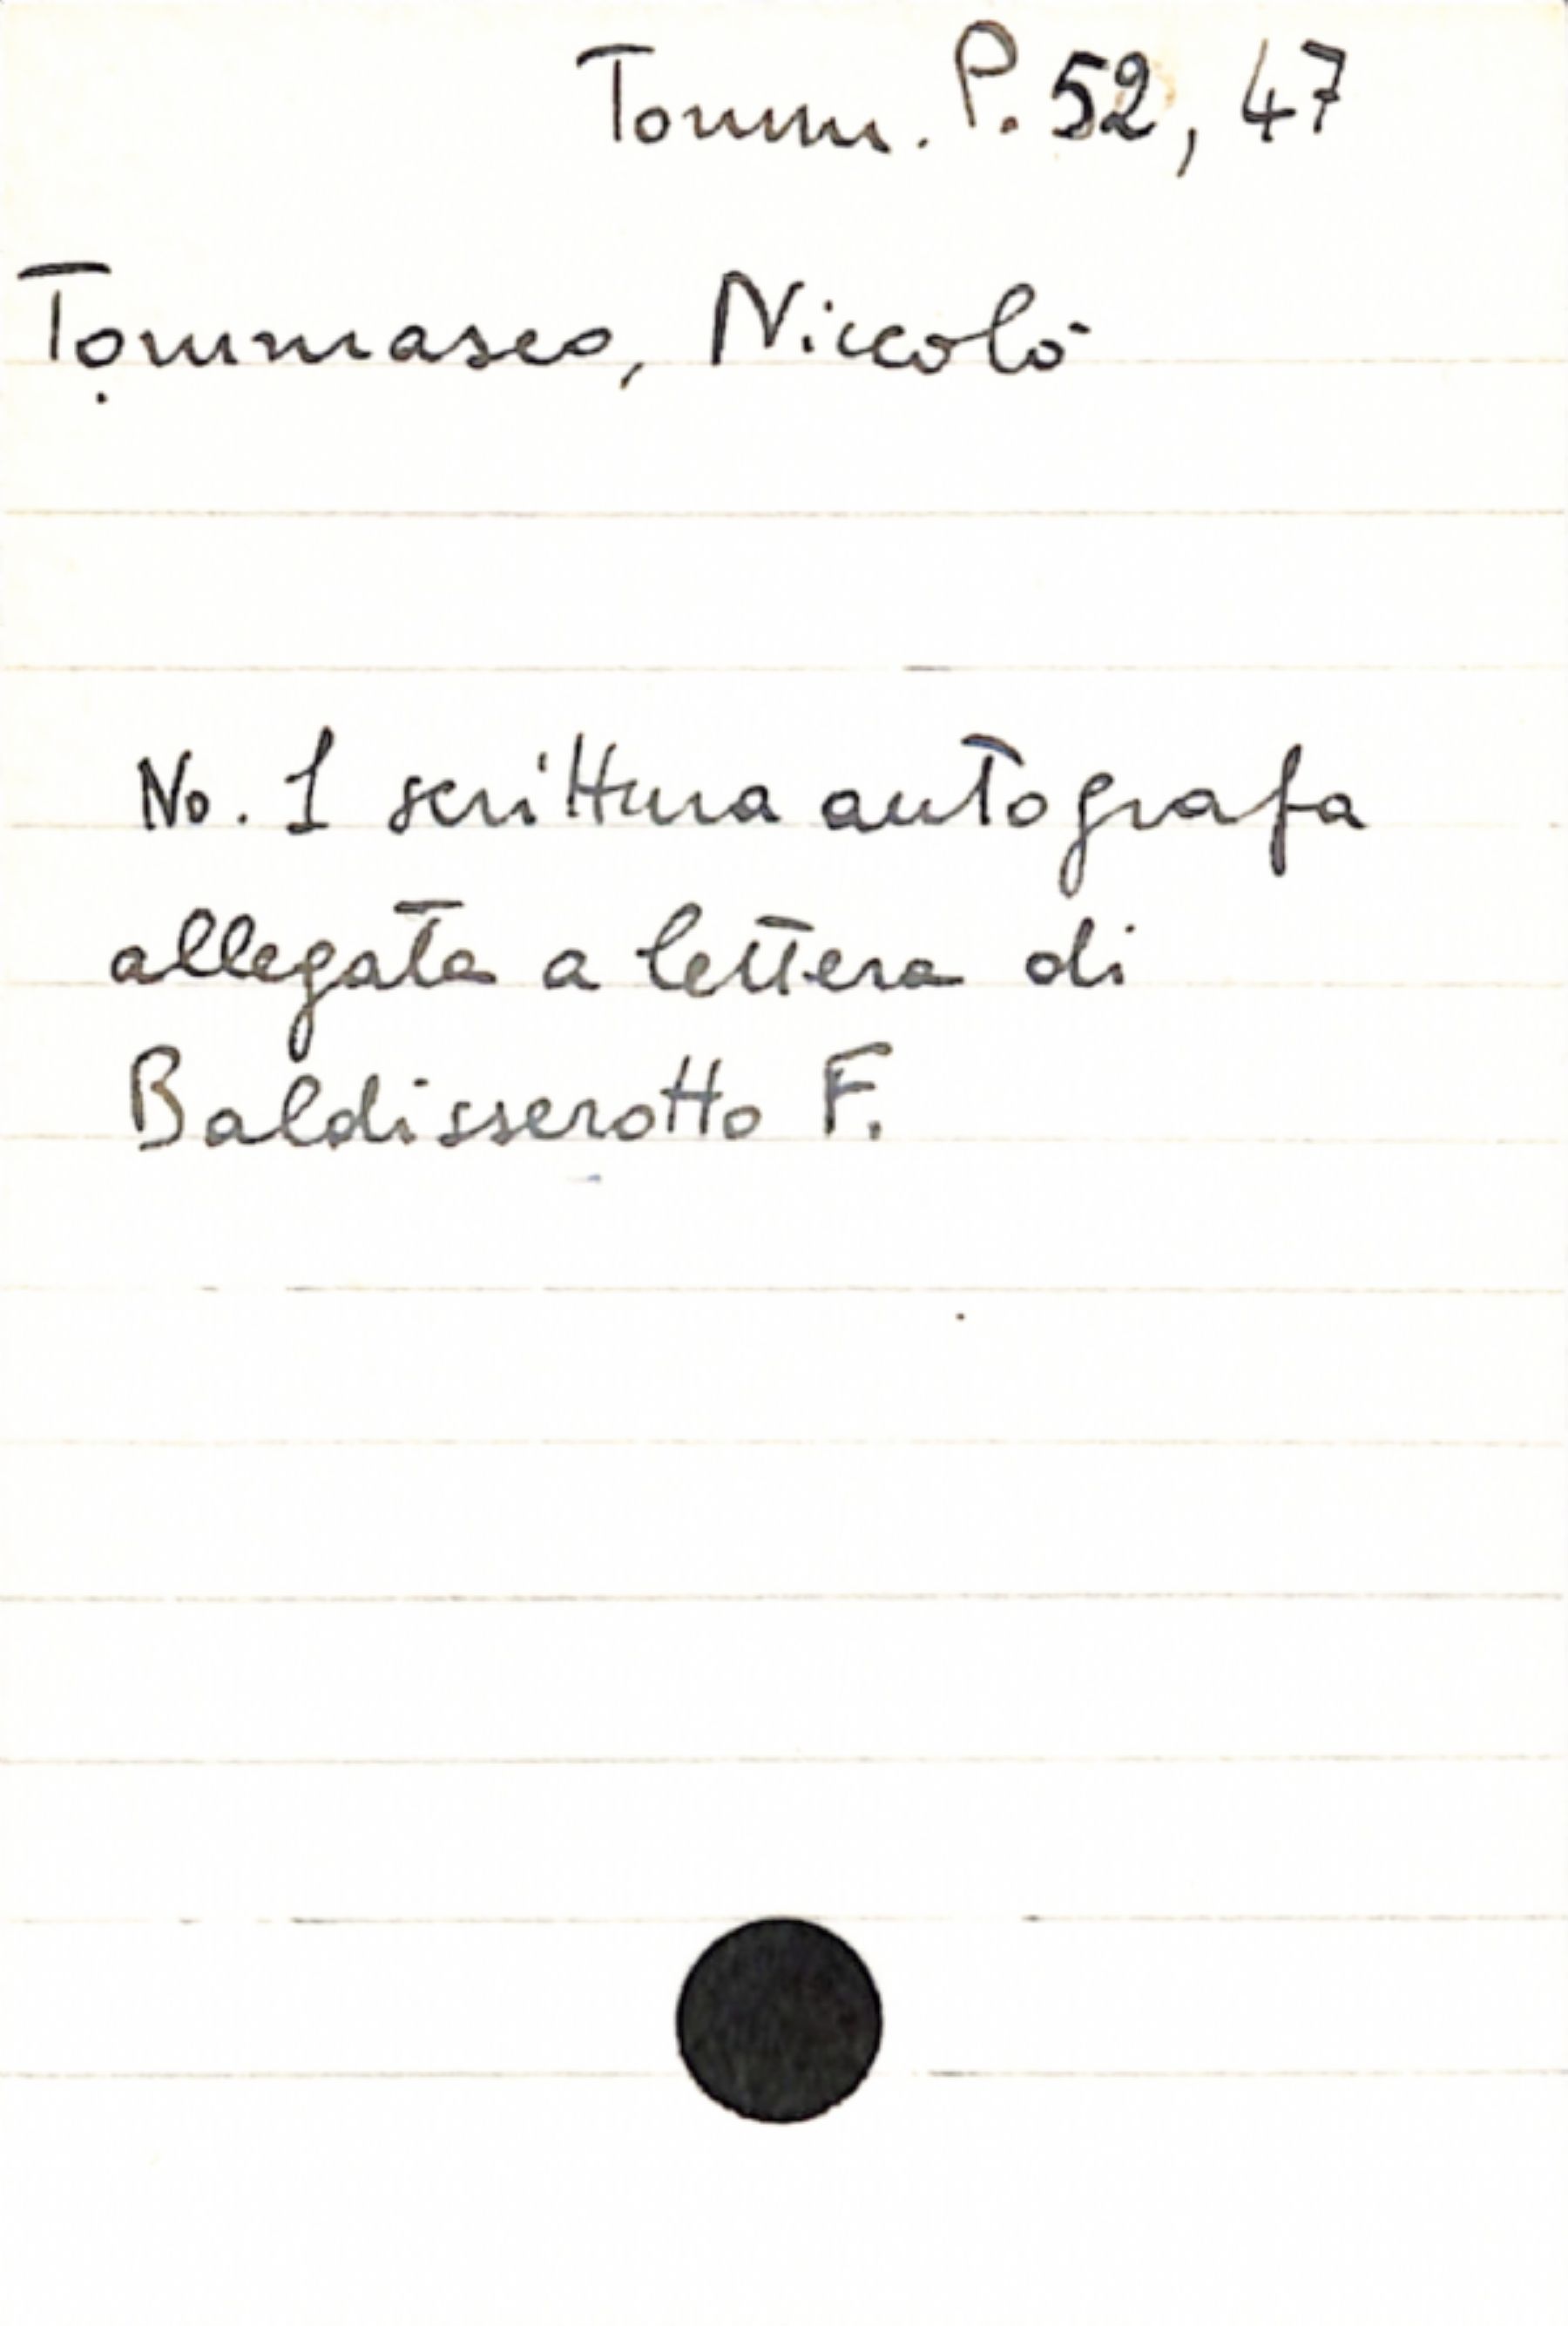 Tomm. P. 52, 47
Tommaseo, Niccolò
No. 1 scrittura autografa
allegata a lettera di
Baldisserotto F.